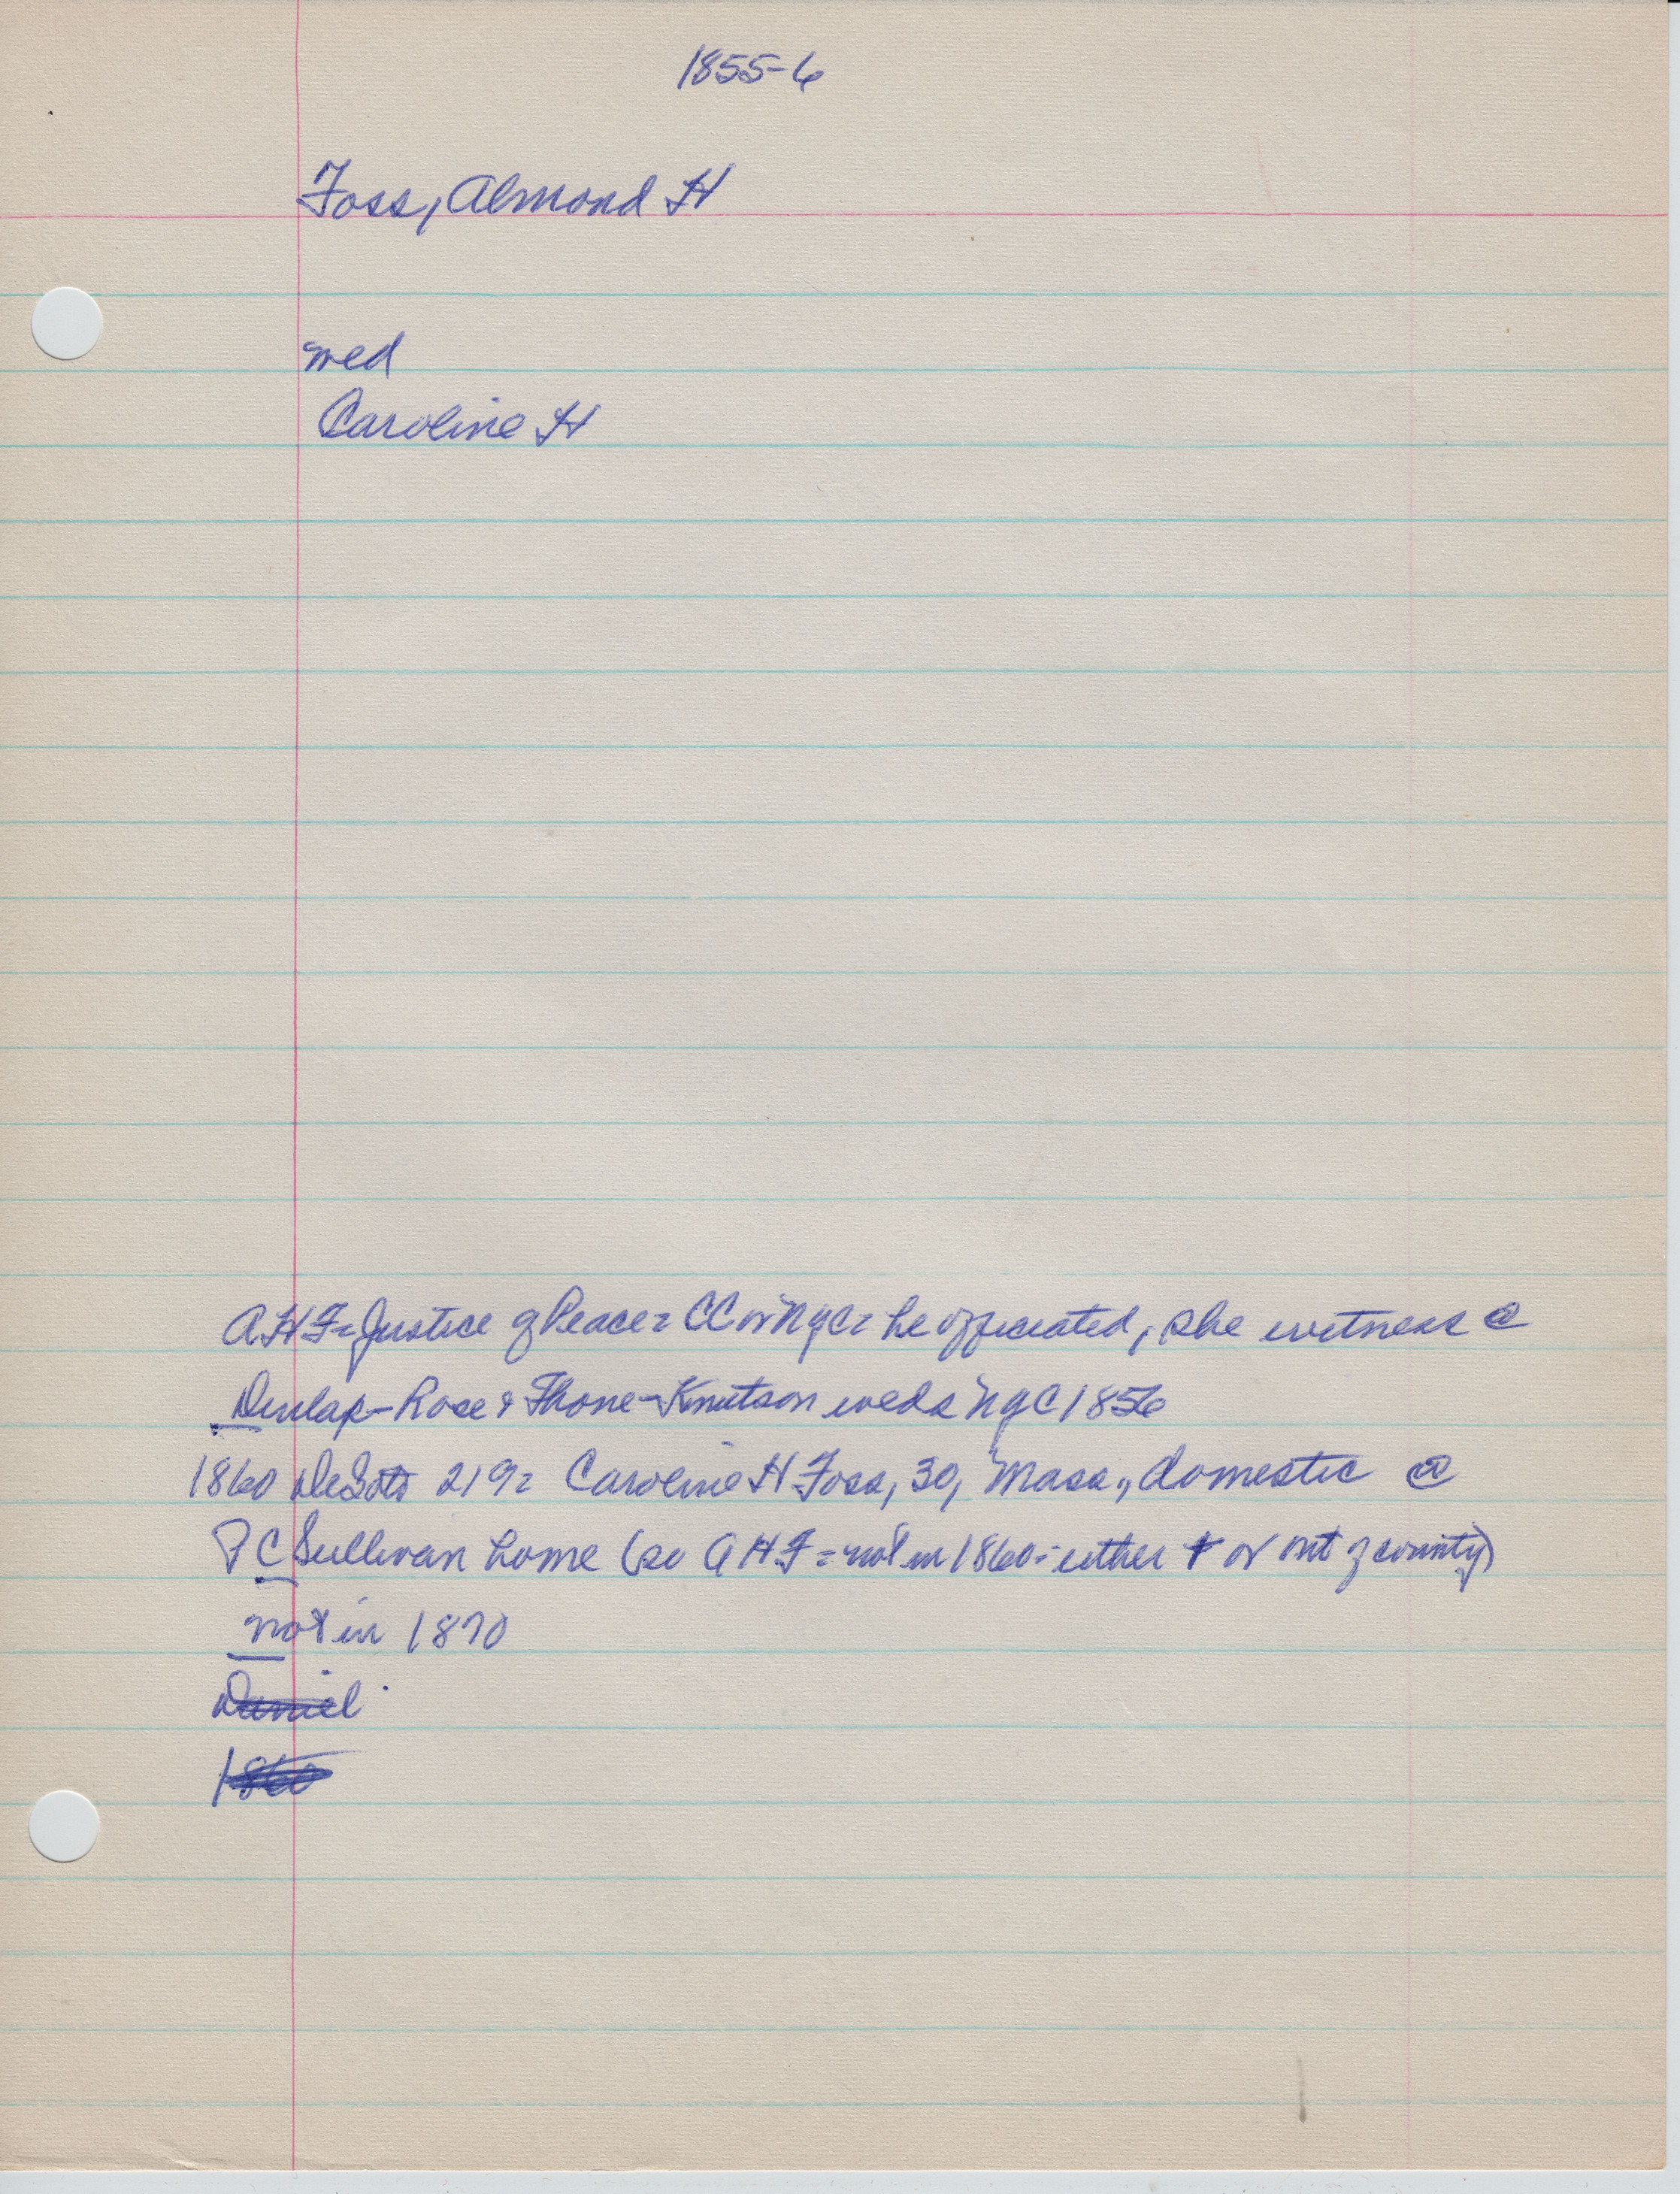 1855-6
Foss, Almond H
wed
Caroline H
AHF = Justice of Peace = CC or NYC = he officiated, she witness @
Dunlap-Rose & Thone-Knutson weds NYC 1856
1860 DeSoto 219 = Caroline H Foss, 30, Mass., domestic @
P C Sullivan home (so AHF = not in 1860 = either + or out of county)
not in 1870
Daniel
1860